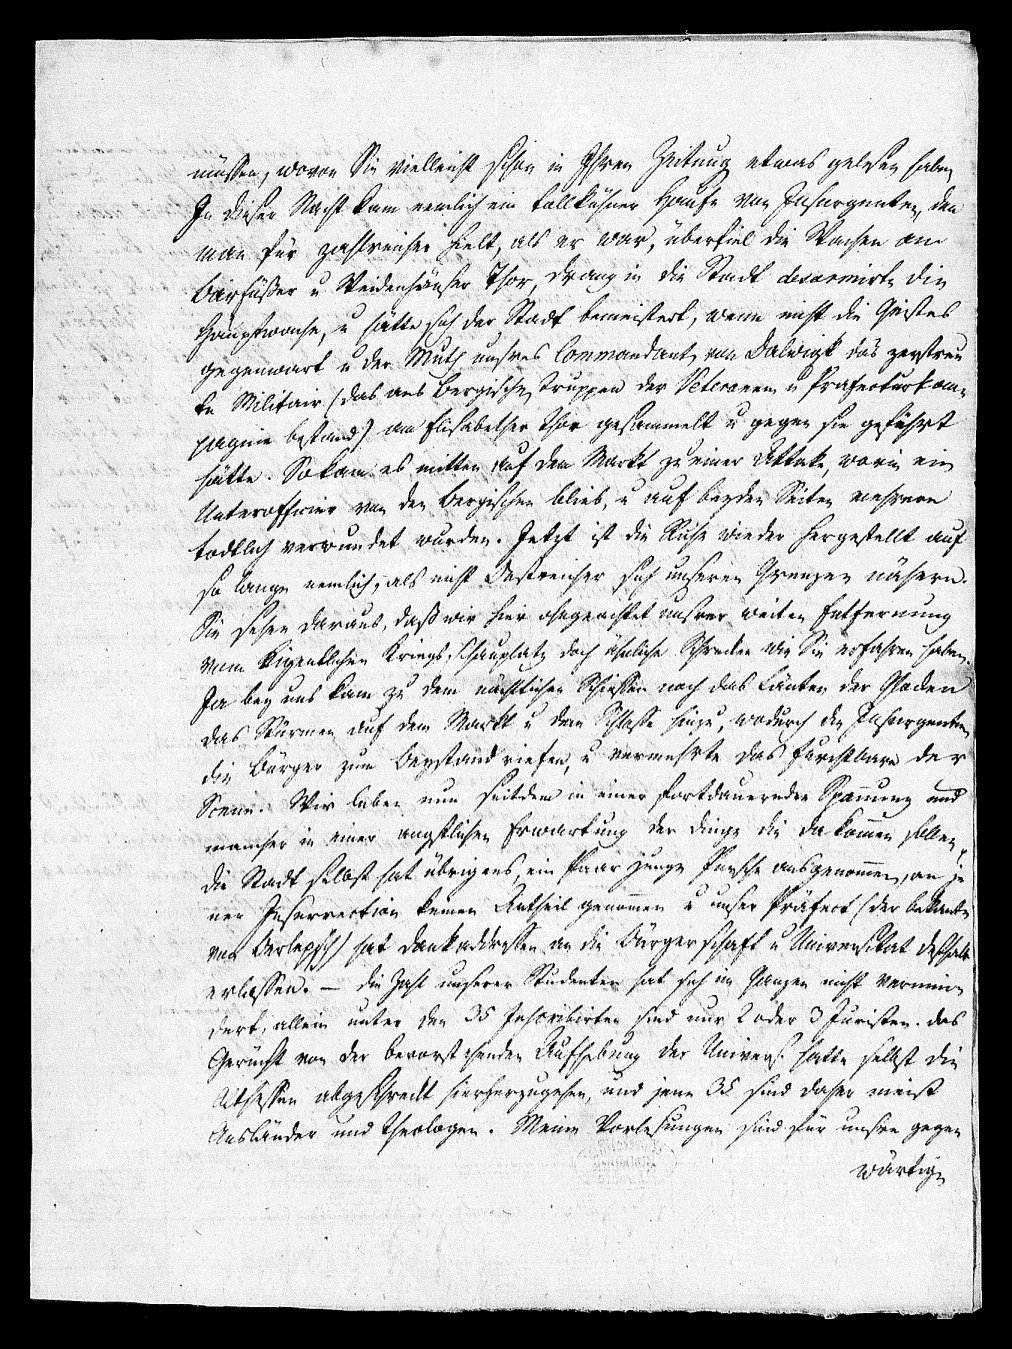 müssen, wovon Sie vielleicht schon in Ihrer Zeitung etwas gelesen haben
In dieser Nacht kam nemlich ein tollkühner Haufe von Insurgenten, den
man für zahlreicher hielt, als er war, überfiel die Wachen am
Barfüßer u Weidenhäuser Thor, drang in die Stadt desarmirte die
Hauptwache, u hätte sich der Stadt bemeistert, wenn nicht die Geistes
gegenwart u der Muth unsres Commandants von Dalwigk das zerstreu
te Militair (das aus Bergischen Truppen der Veteranen u Präfecturkom-
pagnie bestand) am Elisabether Thor gesammelt u gegen sie geführt
hätte. So kam es mitten auf dem Markt zu einer Attake, worin ein
Unterofficier von den Bergischen blieb, u auf beyden Seiten mehrere
tödtlich verwundet wurden. Jetzt ist die Ruhe wieder hergestellt auf
so lange nemlich, als nicht Oestreicher sich unseren Grenzen nähern.
Sie sehen daraus, daß wir hier ohngeachtet unsrer weiten Entfernung
vom eigentlichen Kriegs,schauplatz doch ähnliche Schrecken wie Sie erfahren haben.
Ja bey uns kam zu dem nächtlichen Schiessen noch das Läuten der Glocken
das Stürmen auf dem Markt u dem Schlosse hinzu, wodurch die Insurgenten
die Bürger zum Beystand riefen, u vermehrte das furchtbare der
Scene. Wir leben nun seitdem in einer fortdauernden Spannung und
mancher in einer angstlichen Erwartung der Dinge die da kommen sollen.
Die Stadt selbst hat übrigens, ein Paar junge Pursche ausgenommen, an je
ner Insurrection keinen Antheil genommen u unser Präfect (der bekante
von Berlepsch) hat Dankaddressen an die Bürgerschaft u Universitat deshalb
erlassen. – Die Zahl unserer Studenten hat sich im Ganzen nicht vermin-
dert, allein unter den 35 Inscribirten sind nur 2 oder 3 Juristen. Das
Gerücht von der bevorstehenden Aufhebung der Univers. hatte selbst die
Althessen abgeschreckt hierherzugehen, und jene 35 sind daher meist
Ausländer und Theologen. Meine Vorlesungen sind für unsre gegen
wärtige